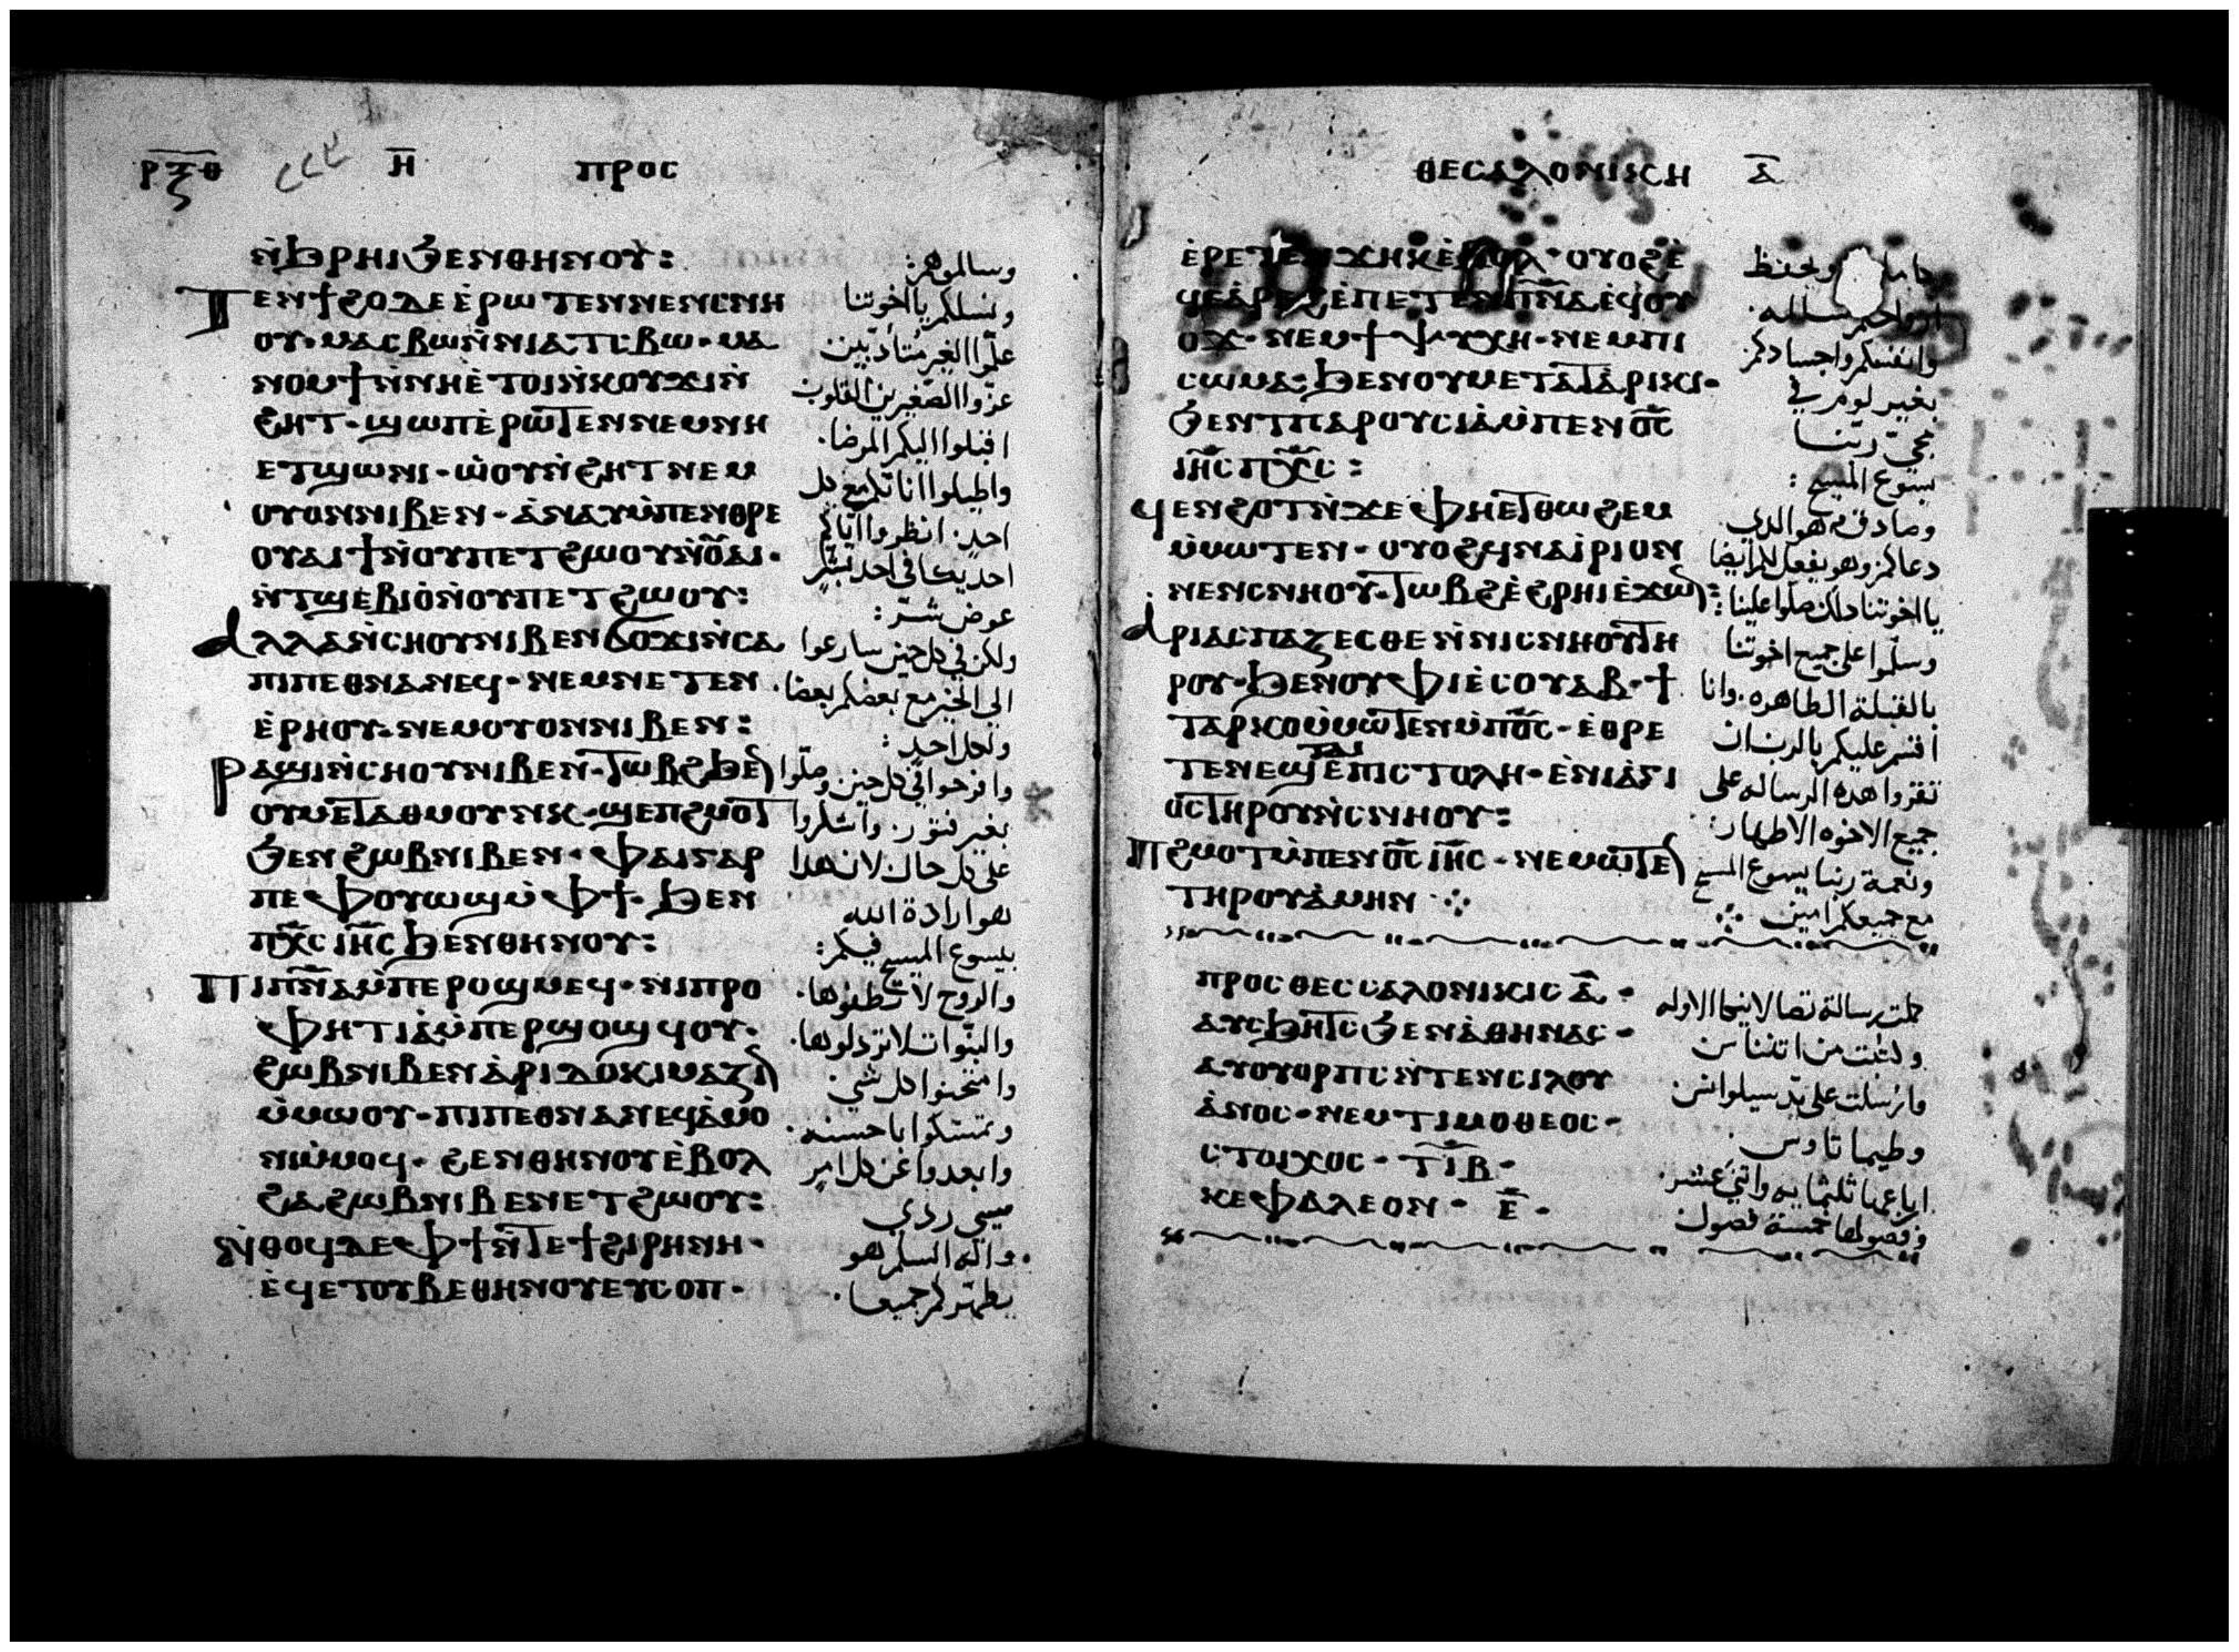 ⲣⲝⲑ ⲏ ⲡⲣⲟⲥ
ⲛ̀ϧⲣⲏⲓϧⲉⲛⲑⲏⲛⲟⲩ:
ⲧⲉⲛϯϩⲟⲇⲉⲉ̀ⲣⲱⲧⲉⲛⲛⲉⲛⲥⲛⲏ
ⲟⲩ·ⲙⲁⲥⲃⲱⲛ̀ⲛⲓⲁⲧⲥⲃⲱ·ⲙⲁ
ⲛⲟⲙϯⲛ̀ⲛⲏⲉ̀ⲧⲟⲓⲛ̀ⲕⲟⲩϫⲓⲛ̀
ϩⲏⲧ·ϣⲱⲡⲉ̀ⲣⲱⲧⲉⲛⲛⲉⲙⲛⲏ
ⲉⲧϣⲱⲛⲓ·ⲱ̀ⲟⲩⲛ̀ϩⲏⲧⲛⲉⲙ
ⲟⲩⲟⲛⲛⲓⲃⲉⲛ·ⲁ̀ⲛⲁⲩⲙ̀ⲡⲉⲛⲑⲣⲉ
ⲟⲩⲁⲓϯⲛ̀ⲟⲩⲡⲉⲧϩⲱⲟⲩⲛ̀ⲟ̅ⲁⲓ·
ⲛ̀ⲧϣⲉⲃⲓⲟ̀ⲛ̀ⲟⲩⲡⲉⲧϩⲱⲟⲩ:
ⲁⲗⲗⲁⲛ̀ⲥⲏⲟⲩⲛⲓⲃⲉⲛϭⲟϫⲓⲛ̀ⲥⲁ
ⲡⲓⲡⲉⲑⲛⲁⲛⲉϥ·ⲛⲉⲙⲛⲉⲧⲉⲛ
ⲉ̀ⲣⲏⲟⲩ·ⲛⲉⲙⲟⲩⲟⲛⲛⲓⲃⲉⲛ:
ⲣⲁϣⲓⲛ̀ⲥⲏⲟⲩⲛⲓⲃⲉⲛ·ⲧⲱⲃϩϧⲉ̅
ⲟⲩⲙⲉⲧⲁⲑⲙⲟⲩⲛⲕ·ϣⲉⲡϩⲙⲟⲧ
ϧⲉⲛϩⲱⲃⲛⲓⲃⲉⲛ·ⲫⲁⲓⲅⲁⲣ
ⲡⲉⲫⲟⲩⲱϣⲙ̀ⲫϯ·ϧⲉⲛ
ⲡⲭ̅ⲥⲓⲏ̅ⲥϧⲉⲛⲑⲏⲛⲟⲩ:
ⲡⲓⲡⲛ̅ⲁⲙ̀ⲡⲉⲣⲟϣⲙⲉϥ·ⲛⲓⲡⲣⲟ
ⲫⲏⲧⲓⲁ̀ⲙ̀ⲡⲉⲣϣⲟϣϥⲟⲩ·
ϩⲱⲃⲛⲓⲃⲉⲛⲁ̀ⲣⲓⲇⲟⲕⲓⲙⲁⲍⲓ̅
ⲙ̀ⲙⲱⲟⲩ·ⲡⲓⲡⲉⲑⲛⲁⲛⲉϥⲁ̀ⲙⲟ
ⲛⲓⲙ̀ⲙⲟϥ·ϩⲉⲛⲑⲏⲛⲟⲩⲉ̀ⲃⲟⲗ
ϩⲁϩⲱⲃⲛⲓⲃⲉⲛⲉⲧϩⲱⲟⲩ:
ⲛ̀ⲑⲟϥⲇⲉⲫϯⲛ̀ⲧⲉϯϩⲓⲣⲏⲛⲏ·
ⲉ̀ϥⲉⲧⲟⲩⲃⲉⲑⲏⲛⲟⲩⲉⲩⲥⲟⲡ·
وسالموهم:
ونسلكم يا اخوتنا
علّموا الغير متأدّبين
عزّوا الصّغيرين القلوب
اقبلوا اليكم المرضا·
واطيلوا اناتكم مع كل
احدٍ· انظروا اياكم
احد يكافي احد بشرٍّ
عوض شرّ:
ولكن في كل حينٍ سارعوا
الي الخير مع بعضكم بعضا·
ولكل احدٍ:
وافرحوا في كل حينٍ وصلّوا
بغير فتورٍ· واشكروا
على كل حال لان هذا
هو ارادة الله
بيسوع المسيح فيكم:
والروح لا تطفوها·
والنبوات لا تردلوها·
وامتحنوا كل شيٍ
وتمسكوا باحسنه·
وابعدوا عن كل امرٍ
سيىٍ ردي
واله السلم هو
يطهّركم جميعا·
ⲑⲉⲥⲁⲗⲟⲛⲓⲕⲥⲏ ⲁ̅
ⲉ̀ⲣⲉⲧⲉⲛϫⲏⲕⲉ̀ⲃⲟⲗ·ⲟⲩⲟϩⲉ̀
ϥⲉⲁ̀ⲣⲉϩⲉ̀ⲡⲉⲧⲉⲛⲡⲛ̅ⲁⲉϥⲟⲩ
ⲟϫ·ⲛⲉⲙϯⲯⲩⲭⲏ·ⲛⲉⲙⲡⲓ
ⲥⲱⲙⲁ·ϧⲉⲛⲟⲩⲙⲉⲧⲁⲧⲁ̀ⲣⲓⲕⲓ·
ϧⲉⲛⲧⲡⲁⲣⲟⲩⲥⲓⲁⲙ̀ⲡⲉⲛⲟ̅ⲥ
ⲓⲏ̅ⲥⲡⲭ̅ⲥ:
ϥⲉⲛϩⲟⲧⲛ̀ϫⲉⲫⲏⲉⲧⲑⲱϩⲉⲙ
ⲙ̀ⲙⲱⲧⲉⲛ·ⲟⲩⲟϩϥⲛⲁⲓ̀ⲣⲓⲟⲛ
ⲛⲉⲛⲥⲛⲏⲟⲩ·ⲧⲱⲃϩⲉ̀ϩⲣⲏⲓⲉ̀ϫⲱ̅:
ⲁⲣⲓⲁⲥⲡⲁⲍⲉⲥⲑⲉⲛ̀ⲛⲓⲥⲛⲏⲟⲩⲧⲏ
ⲣⲟⲩ·ϧⲉⲛⲟⲩⲫⲓⲉ̀ⲥⲟⲩⲁⲃ·ϯ
ⲧⲁⲣⲕⲟⲙ̀ⲙⲱⲧⲉⲛⲙ̀ⲡⲟ̅ⲥ·ⲉ̀ⲑⲣⲉ
ⲧⲉⲛⲉϣⲧⲁⲓⲉ̀ⲡⲓⲥⲧⲟⲗⲏ·ⲉ̀ⲛⲓⲁ̀ⲅⲓ
ⲟⲥⲧⲏⲣⲟⲩⲛ̀ⲥⲛⲏⲟⲩ:
ⲡϩⲙⲟⲧⲙ̀ⲡⲉⲛⲟ̅ⲥⲓⲏ̅ⲥ·ⲛⲉⲙⲱⲧⲉ̅
ⲧⲏⲣⲟⲩⲁ̀ⲙⲏⲛ⁘
ويحفظ
وانفسكم واجسادكم
بغير لومٍ في
مجيّ ربّنا
يسوع المسيح:
وصادقٌ هو الدي
دعاكم وهو يفعل كل ايضا
يا اخوتنا كلك صلوا علينا:
وسلّموا على جميع اخوتنا
بالقبلة الطاهره· وانا
اقسم عليكم بالرب ان
تقروا هده الرساله على
جميع الاخوه الاطهار:
ونعمة ربنا يسوع المسيح
مع جميعكم امين ⁘
ⲡⲣⲟⲥⲑⲉⲥⲥⲁⲗⲟⲛⲓⲕⲓⲥ ⲁ̅·
ⲁⲩⲥϧⲏⲧⲥϧⲉⲛⲁ̀ⲑⲏⲛⲁⲥ·
ⲁⲩⲟⲩⲟⲣⲡⲥⲛ̀ⲧⲉⲛⲥⲓⲗⲟⲩ
ⲁ̀ⲛⲟⲥ·ⲛⲉⲙⲧⲓⲙⲟⲑⲉⲟⲥ·
ⲥⲧⲟⲓⲭⲟⲥ· ⲧ̅ⲓ̅ⲃ̅·
ⲕⲉⲫⲁⲗⲉⲟⲛ· ⲉ̅·
كملت رسالة تصالانيقيا الاوله
وكتبت من اتنناس
وارسلت على يد سيلوانس
وطيماتاوس·
ارباعها ثلثمايه واتني عشر·
وفصولها خمسة فصول